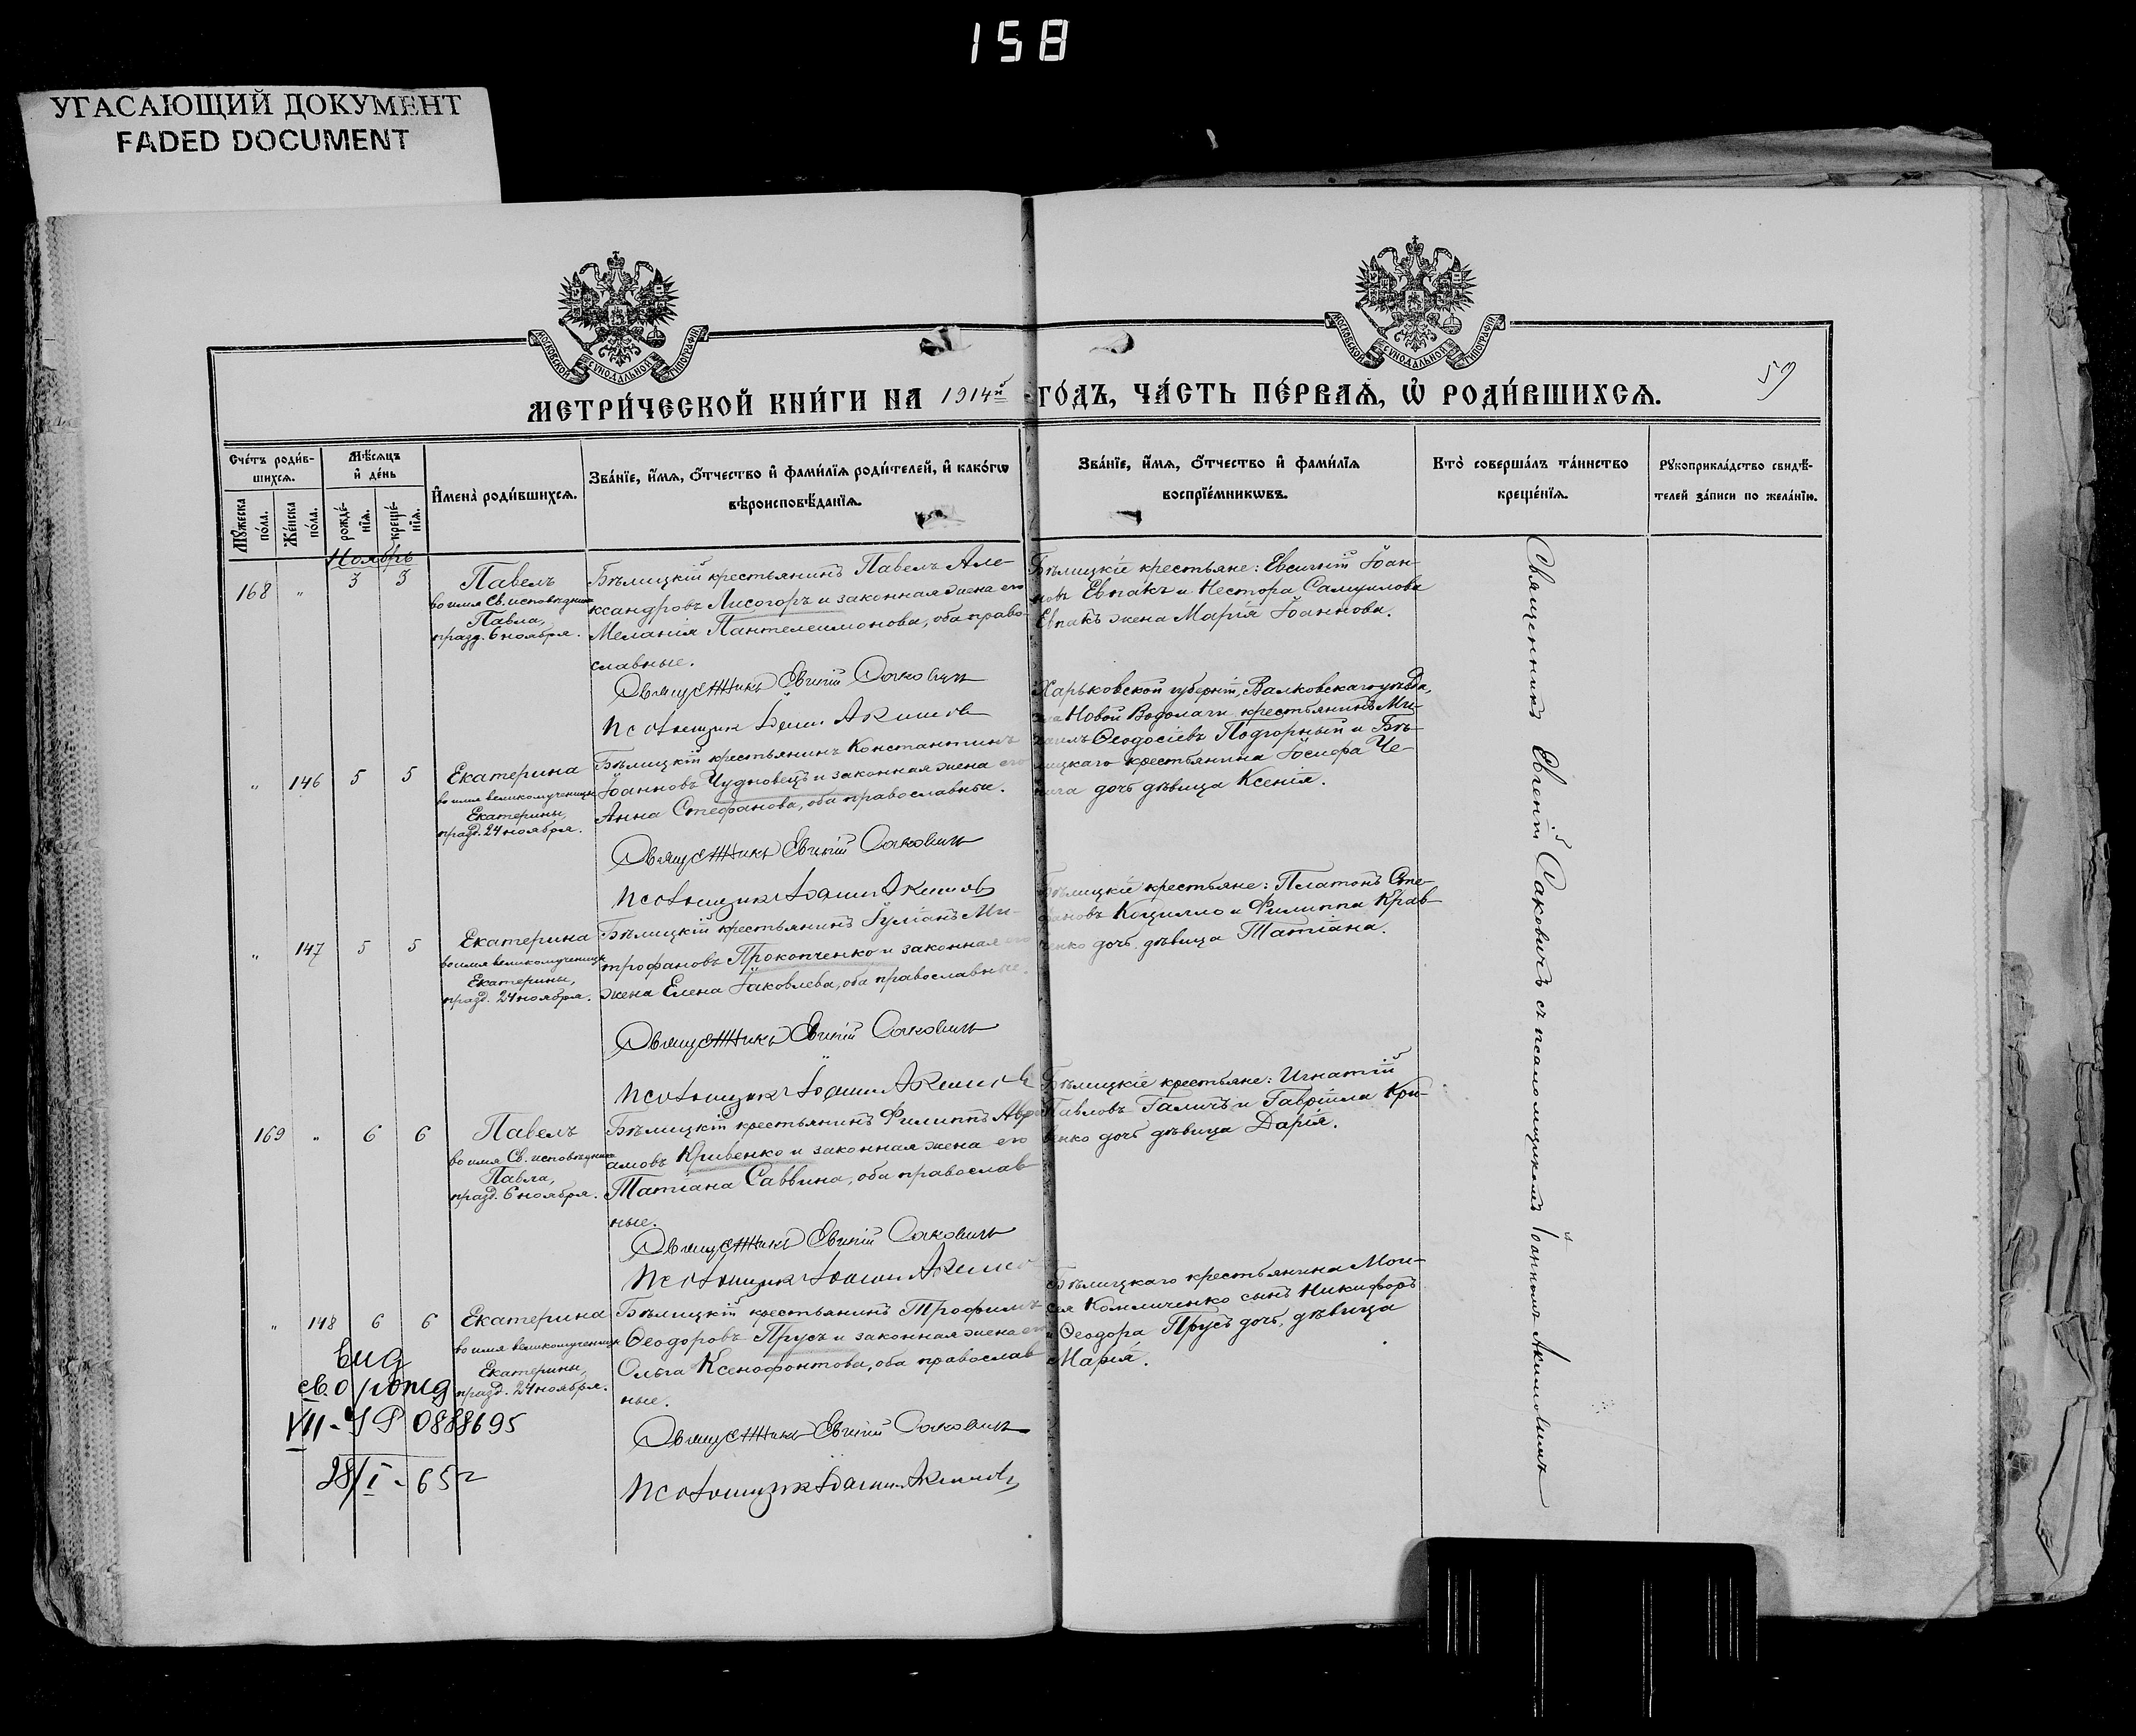 158
УГАСАЮЩИЙ ДОКУМЕНТ
FADED DOCUMENT
МОСКОВСКОЙ СѴНОДАЛЬНОЙ ТИПОГРАФІИ
МОСКОВСКОЙ СѴНОДАЛЬНОЙ ТИПОГРАФІИ
МЕТРИ́ЧЕСКОЙ КНИ́ГИ НА 1914й ГО́ДЪ, ЧА́СТЬ ПЕ́РВАЯ, Ѡ РОДИ́ВШИХСЯ.
59
Сче́тъ роди́в-
шихся.
Мѣ́сяцъ
и де́нь
Мꙋжеска
по́ла.
Же́нска
по́ла.
рожде́-
нїя.
креще́-
нїя.
Имена̀ роди́вшихся.
Зва́нїе, и́мя, о́тчество и фами́лїя роди́телей, и како́гѡ
вѣроисповѣ́данїя.
Зва́нїе, и́мя, о́тчество и фами́лїя
воспрїе́мникѡвъ.
Кто̀ соверша́лъ та́инство
креще́нїя.
Рꙋкоприкла́дство свидѣ́-
телей за́писи по жела́нїю.
Ноябрь
168 " 3 3
Павелъ
во имя Св. исповѣдника
Павла,
празд. 6 ноября.
Бѣлицкій крестьянинъ Павелъ Але-
ксандровъ Лисогоръ и законная жена его
Меланія Пантелеимонова, оба право-
славные.
Священникъ Евгеній Саковичъ
Псаломщикъ Іоаннъ Акимовъ
Бѣлицкіе крестьяне: Евсигній Іоан-
новъ Евпакъ и Нестора Самуилова
Евпакъ жена Марія Іоаннова.
" 146 5 5
Екатерина
во имя великомученицы
Екатерины,
празд. 24 ноября.
Бѣлицкій крестьянинъ Константинъ
Іоанновъ Чудновецъ и законная жена его
Анна Стефанова, оба православные.
Священникъ Евгеній Саковичъ
Псаломщикъ Іоаннъ Акимовъ
Харьковской губерніи, Валковскаго уѣзда,
Новой Водолаги крестьянинъ Ми-
хаилъ Ѳеодосіевъ Подгорный и Бѣ-
лицкаго крестьянина Іосифа Че-
дочь дѣвица Ксенія.
" 147 5 5
Екатерина
во имя великомученицы
Екатерины,
празд. 24 ноября.
Бѣлицкій крестьянинъ Іуліанъ Ми-
трофановъ Прокопченко и законная его
жена Елена Іаковлева, оба православные.
Священникъ Евгеній Саковичъ
Псаломщикъ Іоаннъ Акимовъ
Бѣлицкіе крестьяне: Платонъ Сте-
фановъ и Филиппа Крав-
ченко дочь дѣвица Татіана.
169 " 6 6
Павелъ
во имя Св. исповѣдника
Павла,
празд. 6 ноября.
Бѣлицкій крестьянинъ Филиппъ Авра-
амовъ Кривенко и законная жена его
Татіана Саввина, оба православ
ные.
Священникъ Евгеній Саковичъ
Псаломщикъ Іоаннъ Акимовъ
Бѣлицкіе крестьяне: Игнатій
Павловъ Галичъ и Гавріила Кри-
венко дочь дѣвица Дарія.
" 148 6 6
Екатерина
во имя великомученицы
Екатерины,
празд. 24 ноября.
Бѣлицкій крестьянинъ Трофимъ
Ѳеодоровъ Прусъ и законная жена его
Ольга Ксенофонтова, оба православ
ные.
Священникъ Евгеній Саковичъ
Псаломщикъ Іоаннъ Акимовъ
Бѣлицкаго крестьянина Мои-
сея Компличенко сынъ Никифоръ
и Ѳеодора Прусъ дочь, дѣвица
Марія.
вид
св. о рожд
VII-УР 0888695
28/I-65 г
Священникъ Евгеній Саковичъ съ псаломщикомъ Іоанномъ Акимовымъ